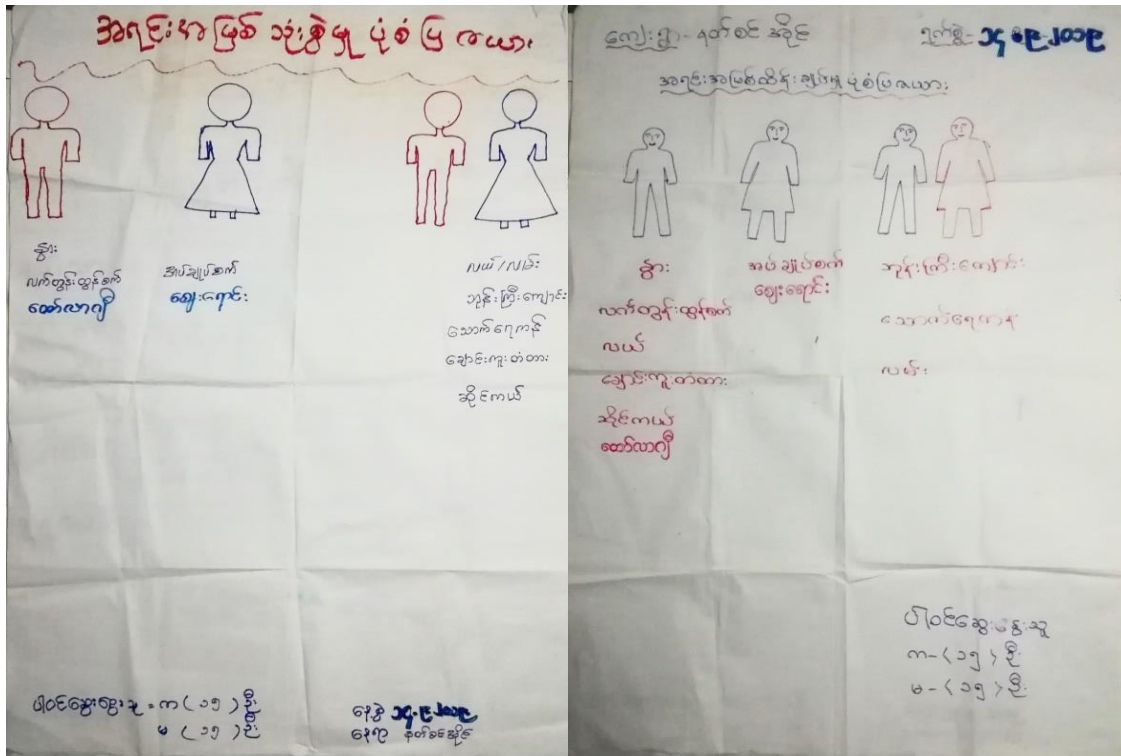 အရင်းအမြစ် သုံးစွဲမှု ပုံစံပြ ဇယား
နွား
လက်တွန်းထွန်စက်
ထော်လာဂျီ
အပ်ချုပ်စက်
ဈေးရောင်း
လယ်/လမ်း
ဘုန်းကြီးကျောင်း
သောက်ရေကန်
ချောင်းကူးတံတား
ဆိုင်ကယ်
ပါဝင်ဆွေးနွေးသူ = က (၁၅) ဦး
မ (၁၅) ဦး
နေ့စွဲ ၁၄.၉.၂၀၁၉
နေရာ နတ်စင်အိုင်
ကျေးရွာ - နတ်စင်အိုင်
ရက်စွဲ - ၁၄.၉.၂၀၁၉
အရင်းအမြစ်ထိန်းချုပ်မှုပုံစံပြဇယား
နွား
လက်တွန်းထွန်စက်
လယ်
ချောင်းကူးတံတား
ဆိုင်ကယ်
ထော်လာဂျီ
အပ်ချုပ်စက်
ဈေးရောင်း
ဘုန်းကြီးကျောင်း
သောက်ရေကန်
လမ်း
ပါဝင်ဆွေးနွေးသူ
က - (၁၅) ဦး
မ - (၁၅) ဦး